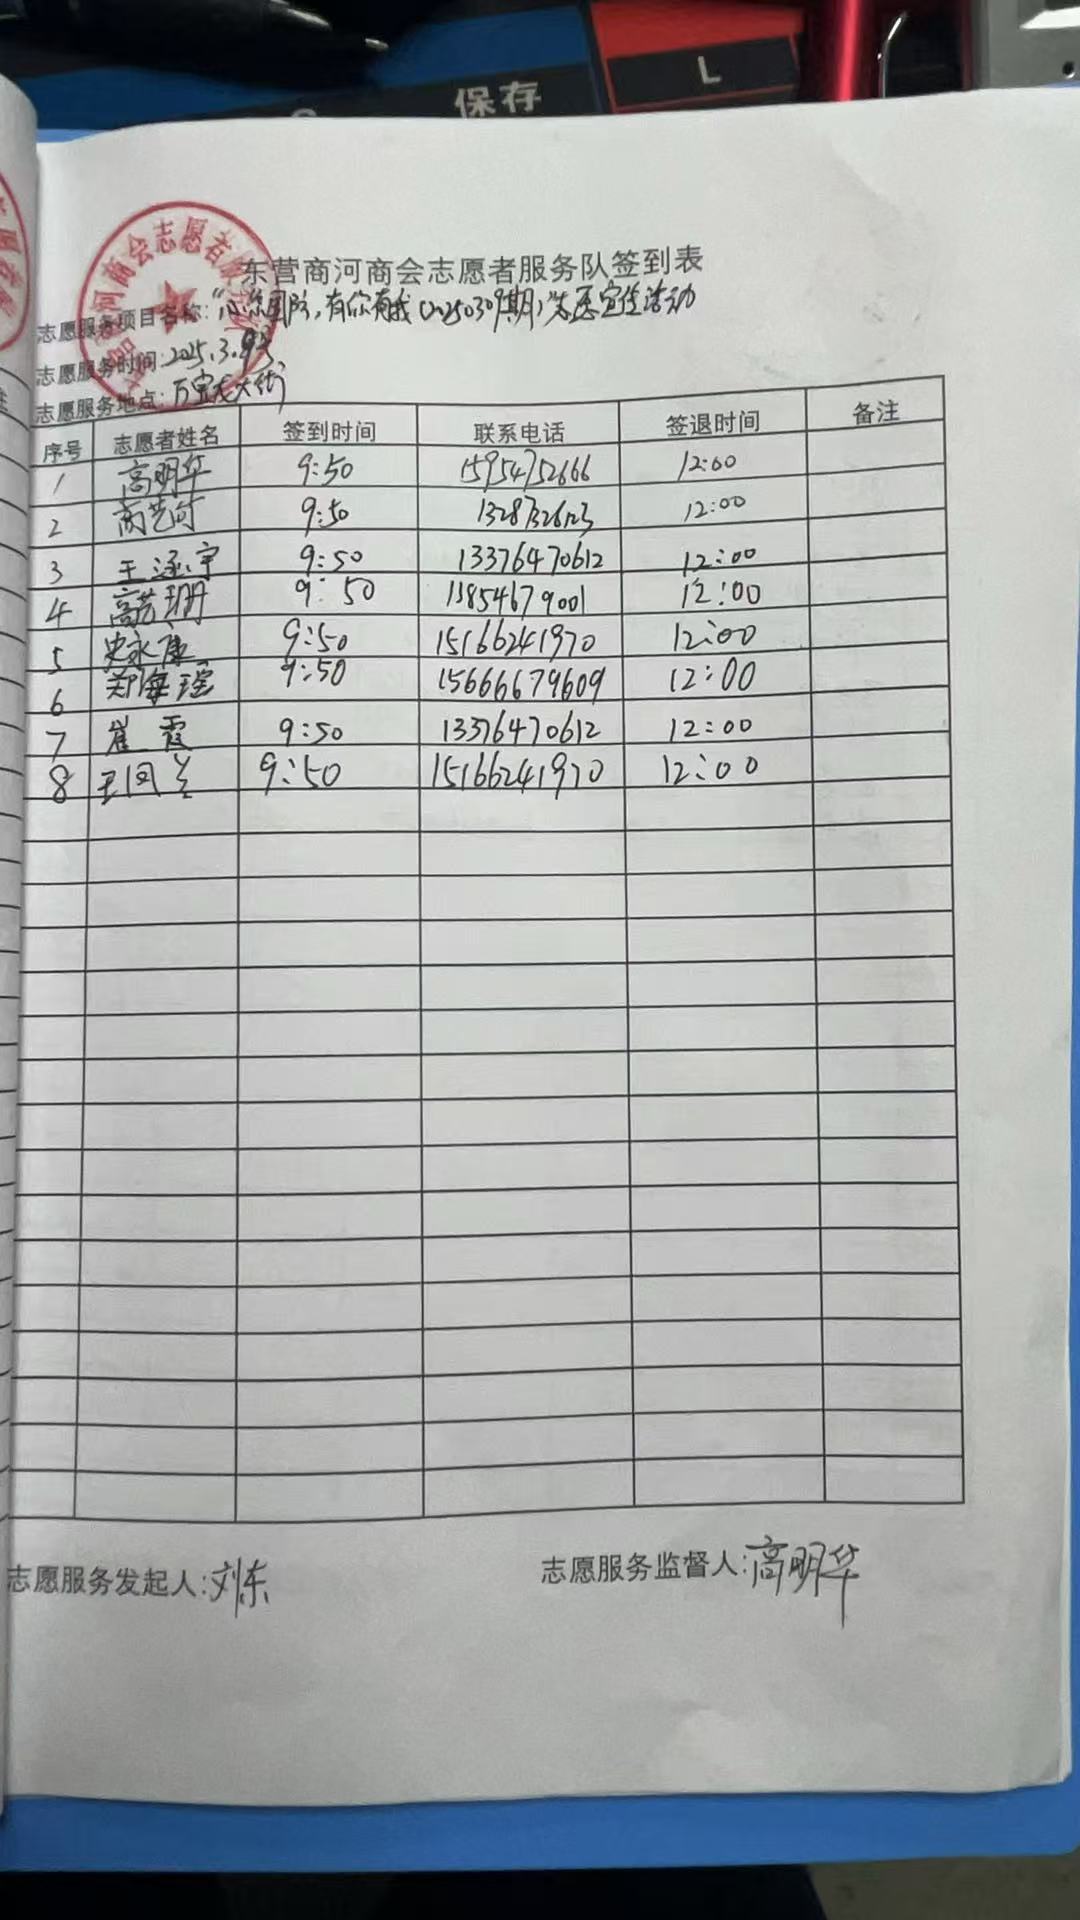 保存
L
东营商河商会志愿者服务队签到表
志愿服务项目名称:“心系国防,有你有我(20250309期)”志愿宣传活动
志愿服务时间:2025.3.9号
志愿服务地点:万宝龙大街
序号 志愿者姓名 签到时间 联系电话 签退时间 备注
1 高明华 9:50 15954752666 12:00
2 9:50 12:00
3 王涵宇 9:50 13376470612 12:00
4 高芳珊 9:50 12:00
5 史永康 9:50 15166241970 12:00
6 郑海瑶 9:50 15666679609 12:00
7 崔霞 9:50 13376470612 12:00
8 王同兰 9:50 15166241970 12:00
志愿服务发起人:刘东 志愿服务监督人:高明华